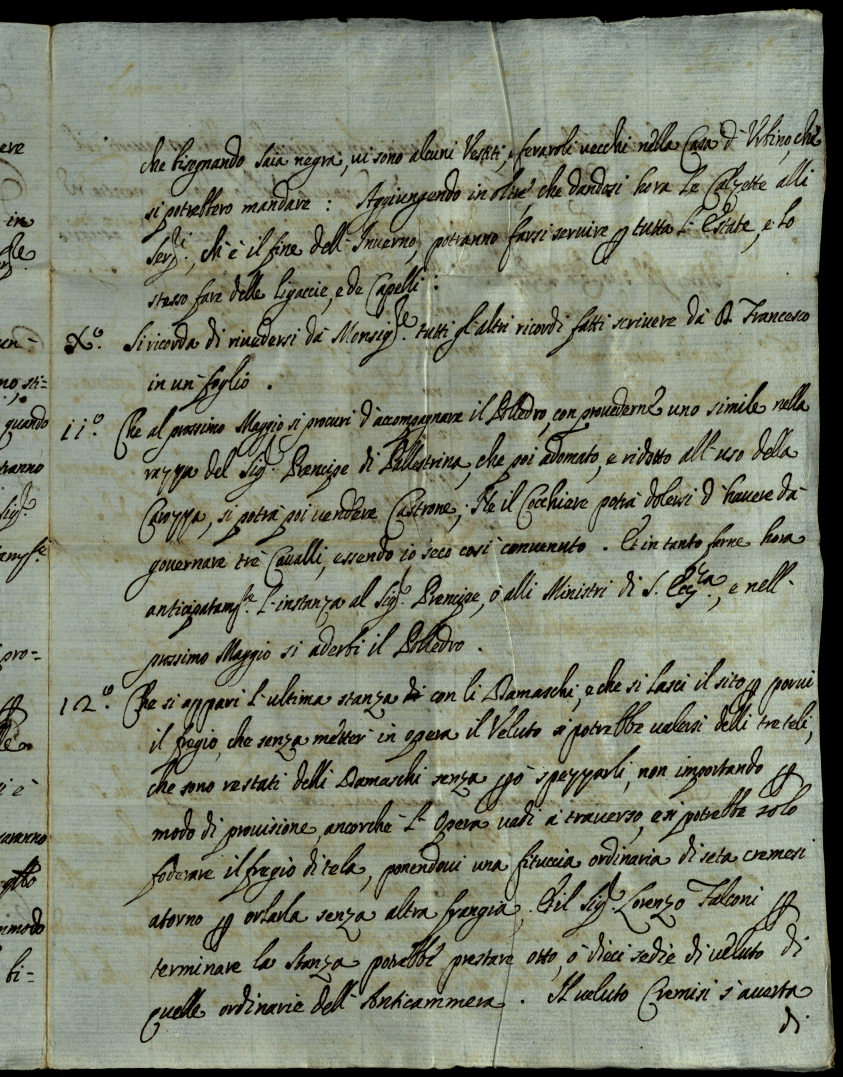 che bisognando saia negra, vi sono alcuni Vestiti, e feraroli vecchi nella Casa d'Urbino, che
si potrebbero mandare : Aggiungendo in oltre che dandosi hora le Calzette alli
Ser.ri, ch'è il fine dell'Inverno, potranno farsi servire p tutta l'Estate, e lo
stesso fare delle ligaccie, e de Capelli :
X.o Si ricorda di rivedersi da Monsig.re tutti gl'altri ricordi fatti scrivere da D. Francesco
in un foglio .
11.o Che al prossimo Maggio si procuri d'accompagnare il Polledro, con provederne uno simile nella
razza del Sig.r Prencipe di Pellestrina, che poi adomato, e ridotto all'uso della
Carozza, si potrà poi vendere Castrone; Ne il Cocchiere potrà dolersi d'havere da
governare trè Cavalli, essendo io seco così convenuto . Et in tanto farne hora
anticipatam.te l'instanza al Sig.r Prencipe, ò alli Ministri di S. Ecc.za, e nell'
prossimo Maggio si aderbi il Polledro .
12.o Che si appari l'ultima stanza con li Damaschi, e che si lasci il sito p porvi
il fregio, che senza metter in opera il Veluto si potrebbe valersi delli tre teli,
che sono restati delli Damaschi senza pò spezzarli, non importando p
modo di provisione, ancorche l'Opera vadi à traverso, e si potrebbe solo
foderare il fregio di tela, ponendovi una fituccia ordinaria di seta cremesi
atorno p orlarla senza altra frangia, Et il Sig.r Lorenzo Falconi p
terminare la stanza potrebbe prestare otto, ò dieci sedie di veluto di
quelle ordinarie dell'Anticammera . Il veluto Cremisi s'averta
di
ere
in
un-
quando
tranno
Sig.r
pro=
p
i è
saranno
mmodo
bi=